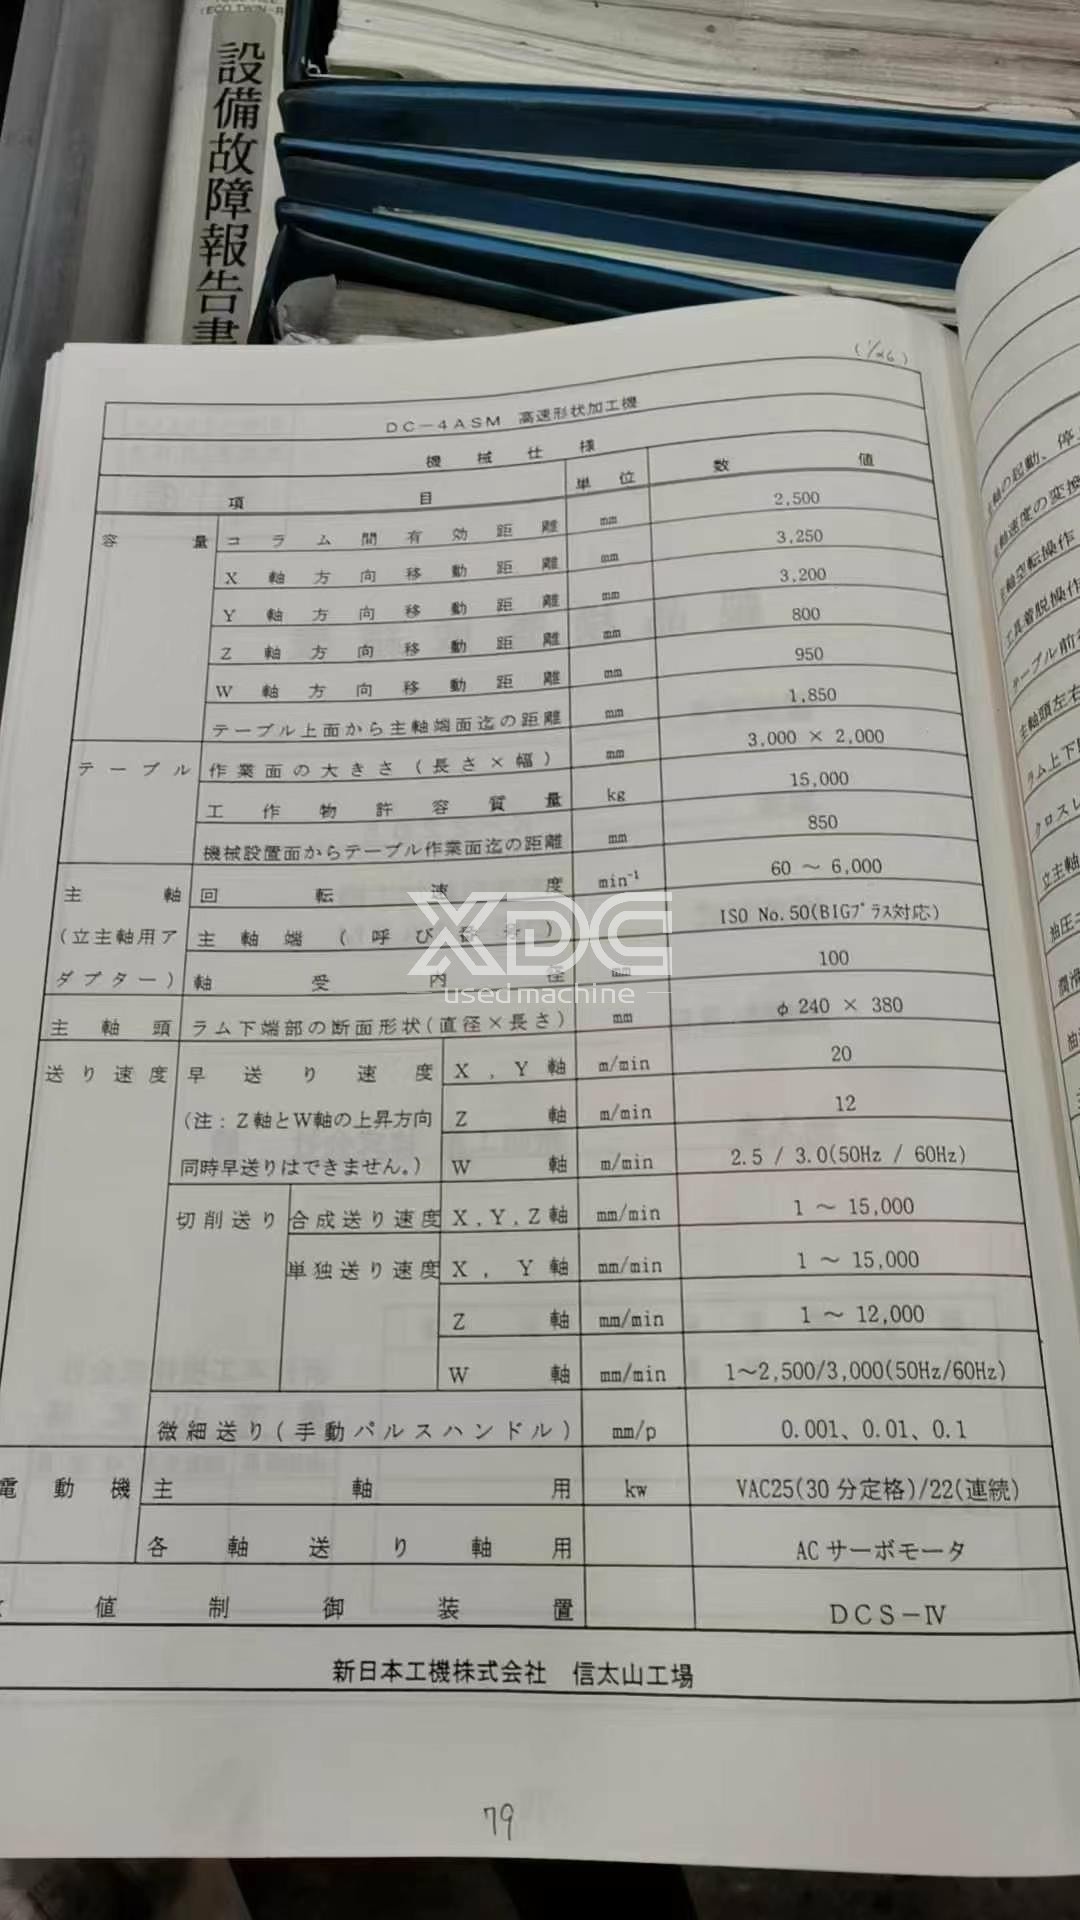 (ECO TWIN-R
設備故障報告書
(1/26)
DC-4ASM 高速形状加工機
機械仕様
項目 単位 数値
容量 コラム間有効距離 mm 2,500
X軸方向移動距離 mm 3,250
Y軸方向移動距離 mm 3,200
Z軸方向移動距離 mm 800
W軸方向移動距離 mm 950
テーブル上面から主軸端面迄の距離 mm 1,850
テーブル 作業面の大きさ(長さ×幅) mm 3,000 × 2,000
工作物許容質量 kg 15,000
機械設置面からテーブル作業面迄の距離 mm 850
主軸 回転速度 min⁻¹ 60 ~ 6,000
(立主軸用ア 主軸端(呼び番号) ISO No.50(BIGプラス対応)
ダプター) 軸受内径 mm 100
主軸頭 ラム下端部の断面形状(直径×長さ) mm φ240 × 380
送り速度 早送り速度 X,Y軸 m/min 20
(注:Z軸とW軸の上昇方向 Z軸 m/min 12
同時早送りはできません。) W軸 m/min 2.5 / 3.0(50Hz / 60Hz)
切削送り 合成送り速度 X,Y,Z軸 mm/min 1 ~ 15,000
単独送り速度 X,Y軸 mm/min 1 ~ 15,000
Z軸 mm/min 1 ~ 12,000
W軸 mm/min 1~2,500/3,000(50Hz/60Hz)
微細送り(手動パルスハンドル) mm/p 0.001、0.01、0.1
電動機 主軸用 kw VAC25(30分定格)/22(連続)
各軸送り軸用 ACサーボモータ
値制御装置 DCS-Ⅳ
新日本工機株式会社 信太山工場
79
XDC
used machine
主軸の起動、停
主軸速度の変換
主軸空転操作
工具着脱操作
テーブル前
主軸頭左右
ラム上下
クロスレ
立主軸
油圧
潤滑
油